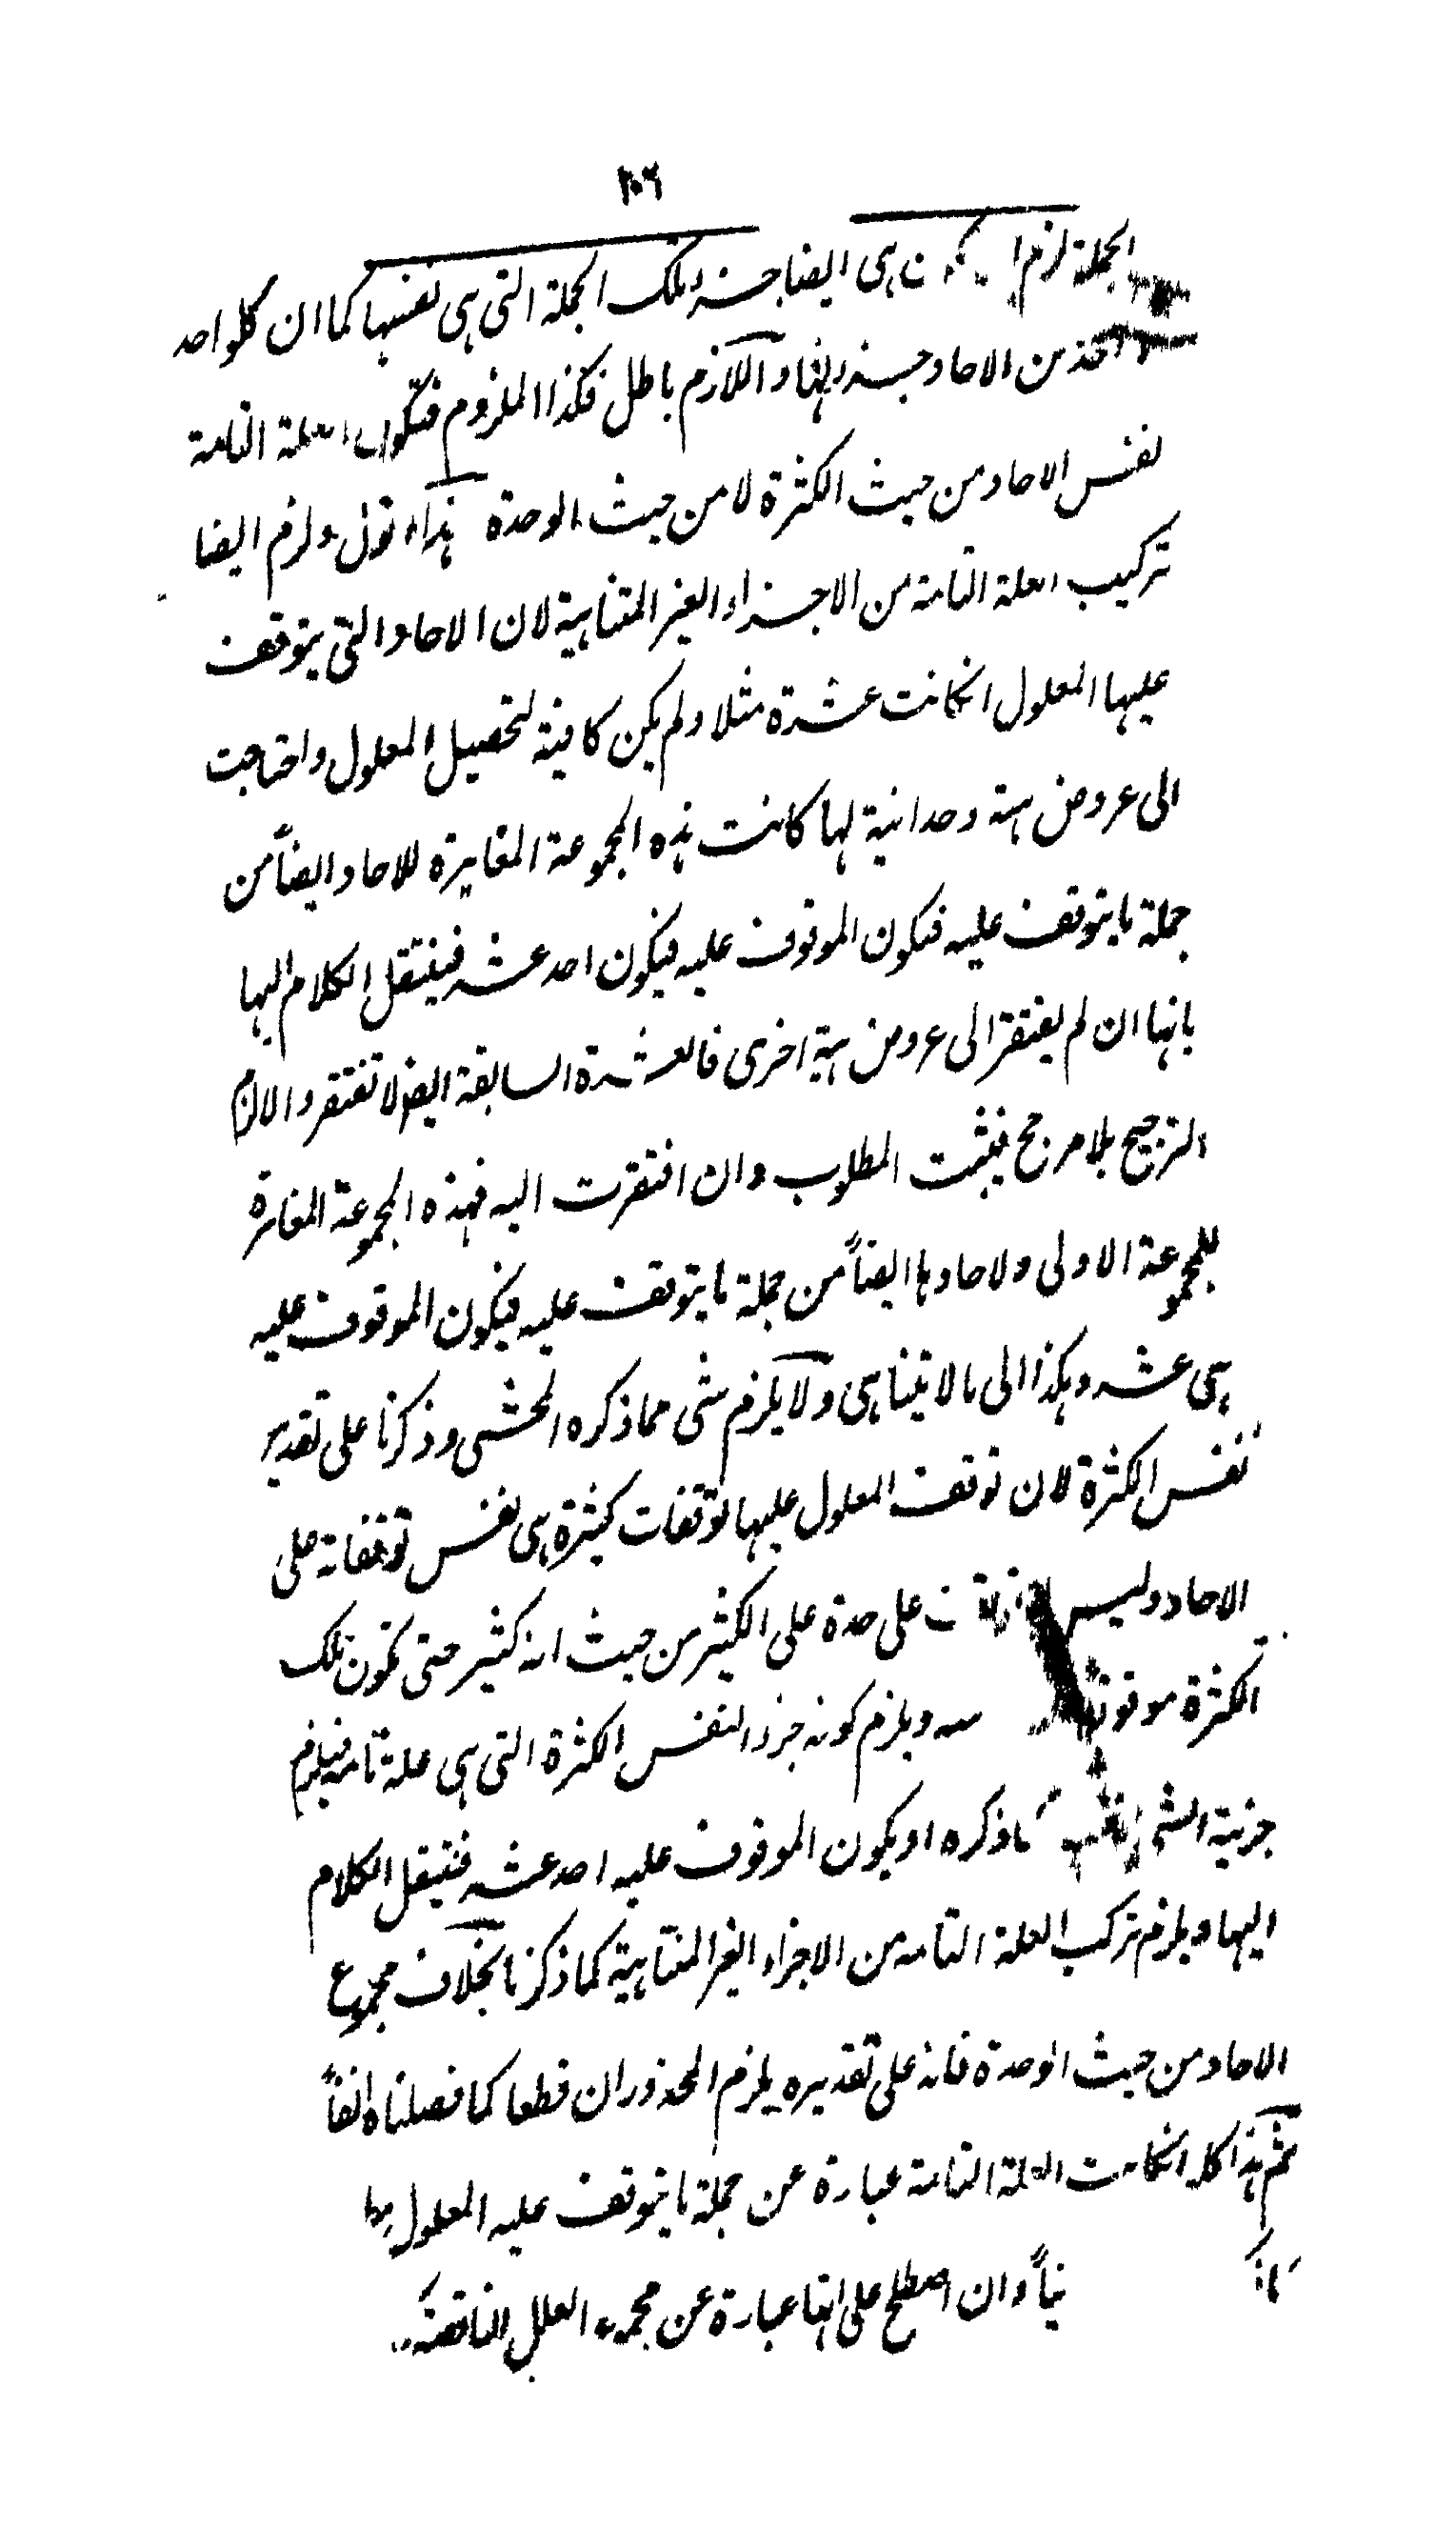 ١٠٦
الجملة لزم ا ن هى ايضا جزء تلك الجملة التى هى نفسها كما ان كلواحد
من الاحاد جزء لها واللازم باطل فكذا الملزوم فتكون العلة التامة
نفس الاحاد من حيث الكثرة لا من حيث الوحدة هذا اقول ولزم ايضا
تركيب العلة التامة من الاجزاء الغير المتناهية لان الاحاد التى يتوقف
عليها المعلول انكانت عشرة مثلا ولم يكن كافية لتحصيل المعلول واحتاجت
الى عروض هيئة وحدانية لها كانت هذه المجموعة المغايرة للاحاد ايضاً من
جملة ما يتوقف عليه فتكون الموقوف عليه فيكون احد عشر فينتقل الكلام اليها
بانها ان لم يفتقر الى عروض هيئة اخرى فالعشرة السابقة ايضا لا تفتقر والا لزم
الترجيح بلا مرجح فيثبت المطلوب وان افتقرت اليه فهذه المجموعة المغايرة
للمجموعة الاولى ولاحادها ايضاً من جملة ما يتوقف عليه فيكون الموقوف عليه
هى عشر وهكذا الى ما لا يتناهى ولا يلزم شى مما ذكره المحشى وذكرنا على تقدير
نفس الكثرة لان توقف المعلول عليها توقفات كثيرة هى نفس توقفاته على
الاحاد وليس على حدة على الكثير من حيث انه كثير حتى تكون تلك
الكثرة موقوفا ويلزم كونه جزء النفس الكثرة التى هى علة تامة فيلزم
جزئية الشى ما ذكره او يكون الموقوف عليه احد عشر فينتقل الكلام
اليها ويلزم تركب العلة التامه من الاجزاء الغير المتناهية كما ذكرنا بخلاف مجموع
الاحاد من حيث الوحدة فانه على تقديره يلزم المحذوران قطعا كما فصلناه انفاً
ثم هذا كله انكانت العلة التامة عبارة عن جملة ما يتوقف عليه المعلول
وان اصطلح على انها عبارة عن مجموع العلل الناقصة